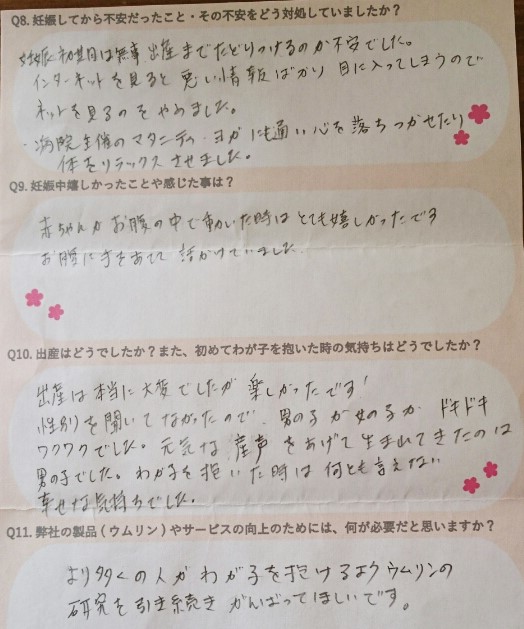 Q8. 妊娠してから不安だったこと・その不安をどう対処していましたか？
妊娠初期は無事出産までたどりつけるのか不安でした。
インターネットを見ると悪い情報ばかり目に入ってしまうので
ネットを見るのをやめました。
・病院主催のマタニティ・ヨガにも通い心を落ちつかせたり
体をリラックスさせました。
Q9. 妊娠中嬉しかったことや感じた事は？
赤ちゃんがお腹の中で動いた時はとても嬉しかったです
お腹に手をあてて話かけていました
Q10. 出産はどうでしたか？また、初めてわが子を抱いた時の気持ちはどうでしたか？
出産は本当に大変でしたが楽しかったです！
性別を聞いてなかったので、男の子か女の子か ドキドキ
ワクワクでした。元気な産声をあげて生まれてきたのは
男の子でした。わが子を抱いた時は何とも言えない
幸せな気持ちでした。
Q11. 弊社の製品（ウムリン）やサービスの向上のためには、何が必要だと思いますか？
より多くの人がわが子を抱けるようウムリンの
研究を引き続きがんばってほしいです。